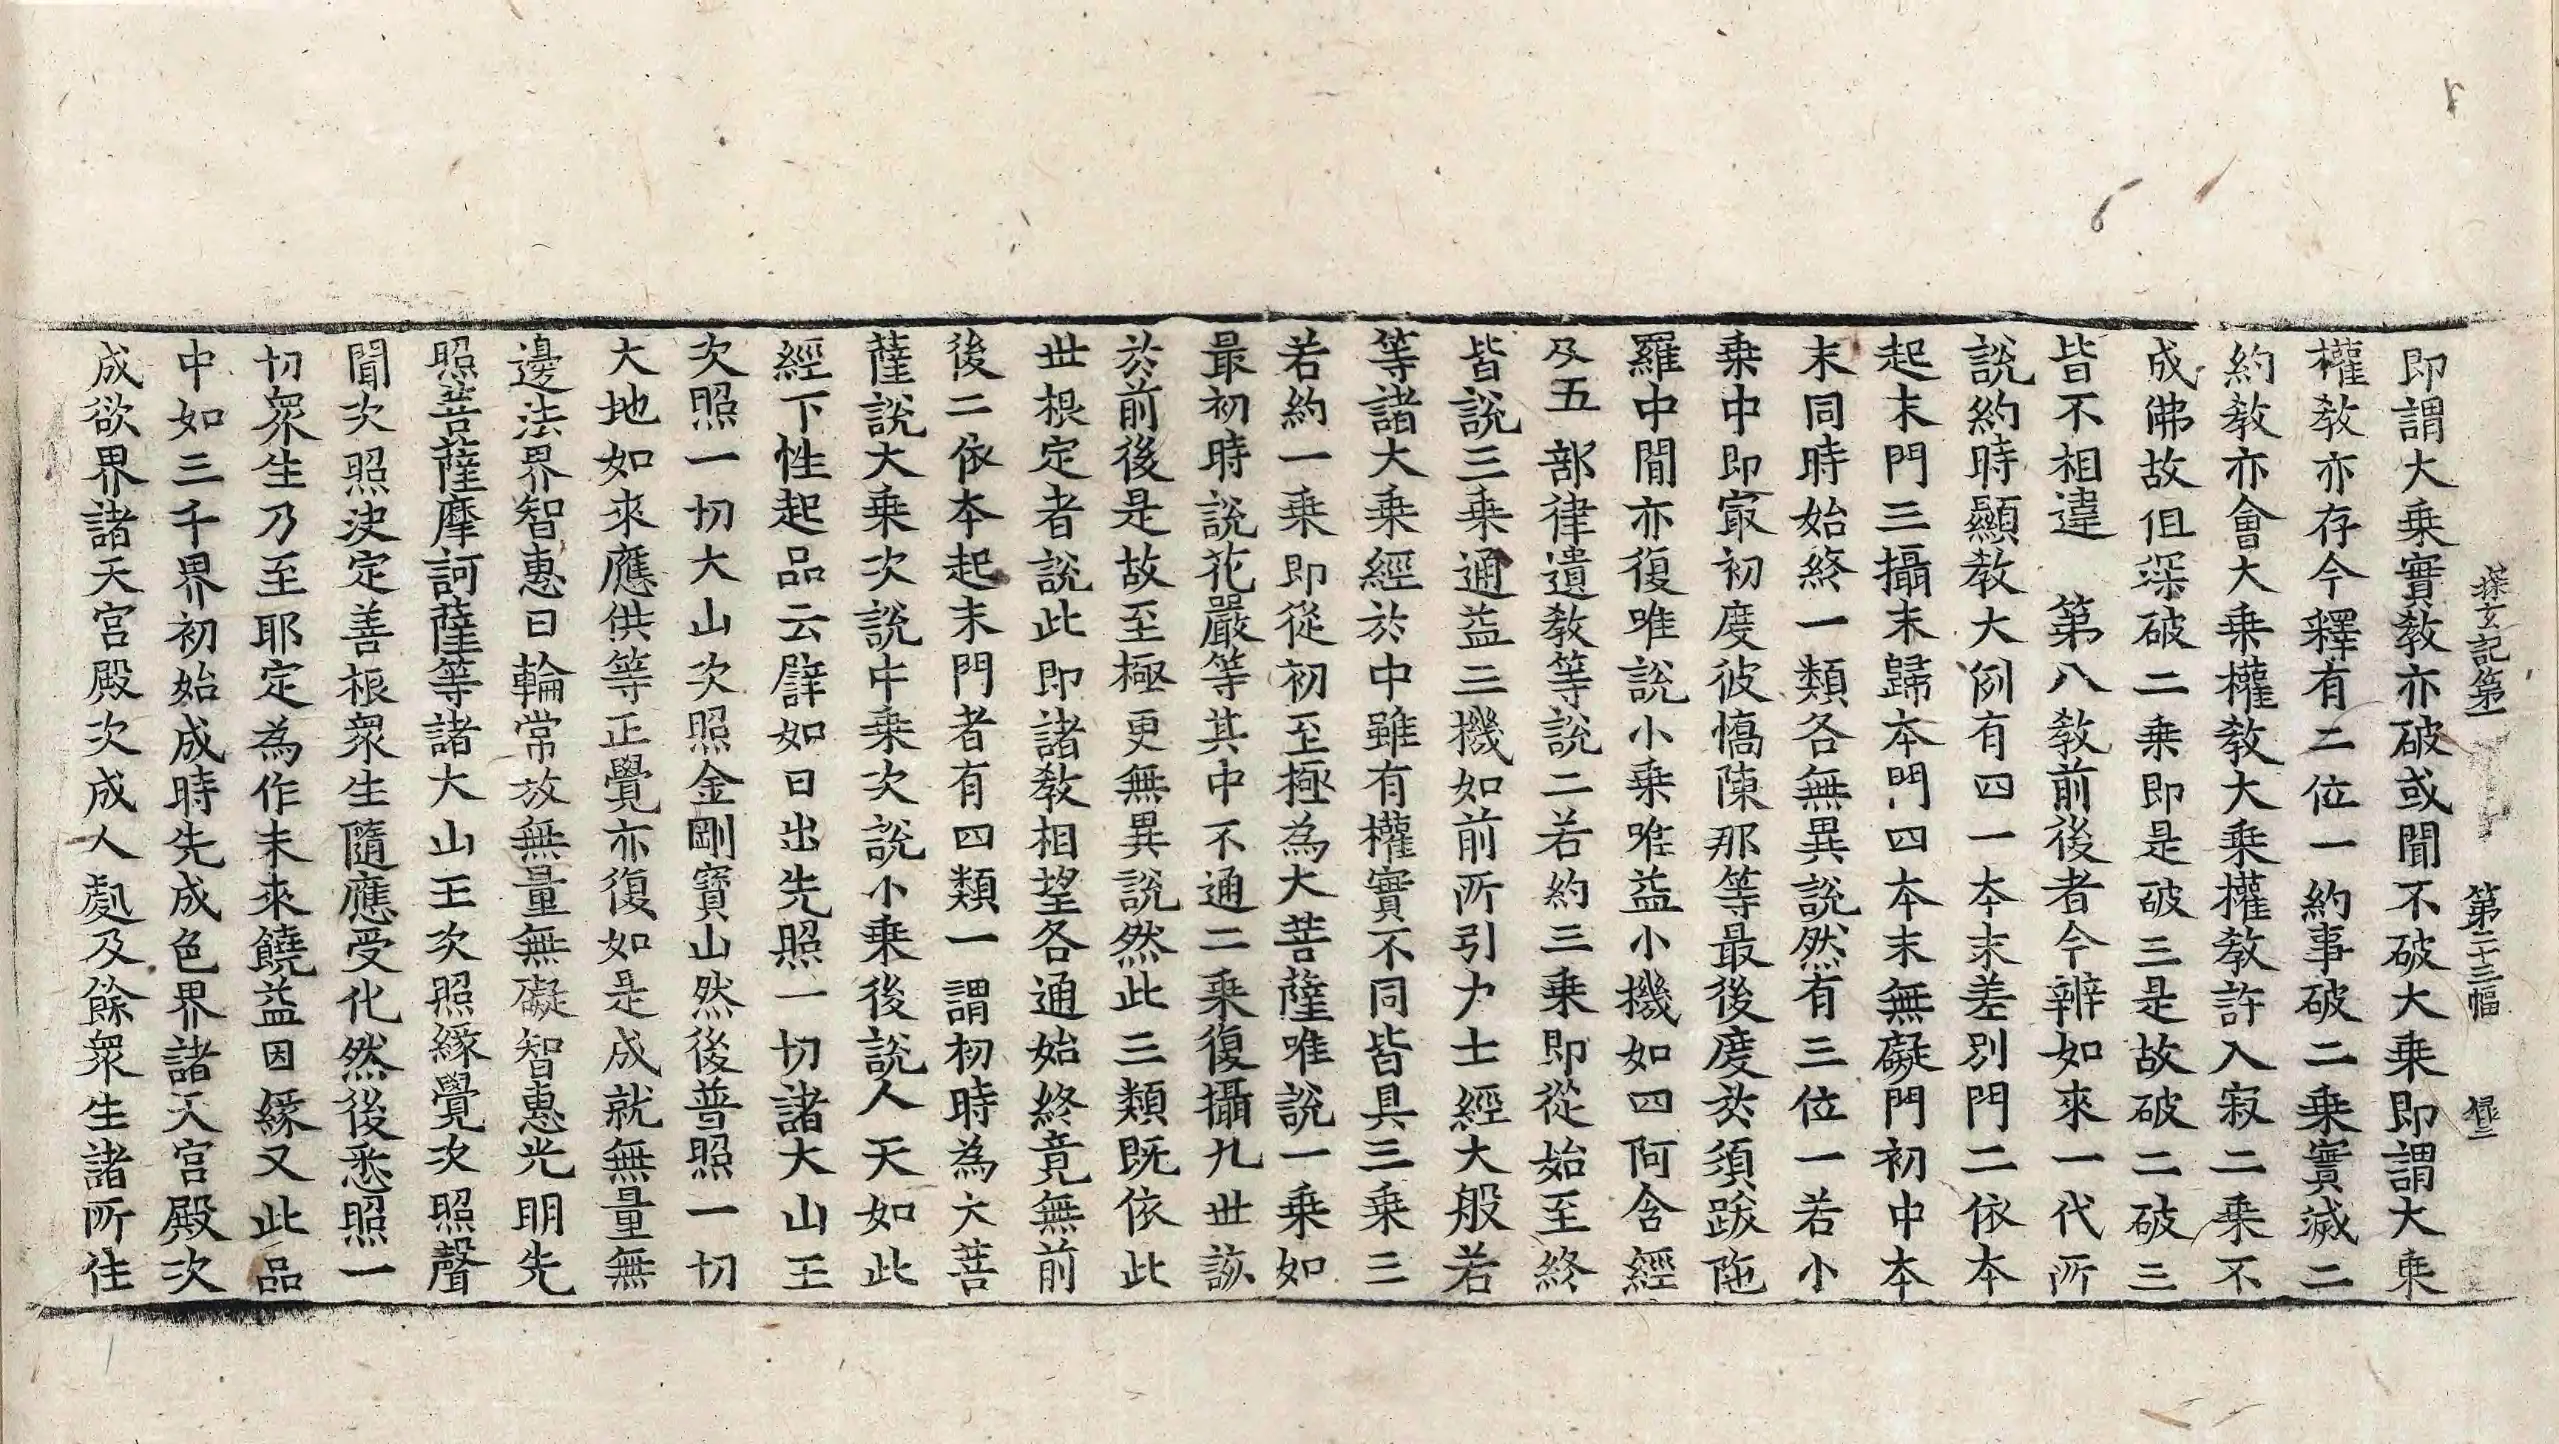 探玄記第一 第二十三幅
即謂大乗實教亦破或聞不破大乗即謂大乗
權教亦存今釋有二位一約事破二乗實滅二
約教亦會大乗權教大乗權教許入寂二乗不
成佛故但深破二乗即是破三是故破二破三
皆不相違 第八教前後者今辨如來一代所
說約時顯教大例有四一本末差別門二依本
起末門三攝末歸本門四本末無礙門初中本
末同時始終一類各無異說然有三位一若小
乗中即㝡初度彼憍陳那等最後度於須跋陁
羅中間亦復唯說小乗唯益小機如四阿含經
及五部律遺教等說二若約三乗即從始至終
皆說三乗通益三機如前所引力士經大般若
等諸大乗經於中雖有權實不同皆具三乗三
若約一乗即從初至極為大菩薩唯說一乗如
最初時說花嚴等其中不通二乗復攝九世該
於前後是故至極更無異說然此三類既依此
世根定者說此即諸教相望各通始終竟無前
後二依本起末門者有四類一謂初時為大菩
薩說大乗次說中乗次說小乗後說人天如此
經下性起品云辟如日出先照一切諸大山王
次照一切大山次照金剛寶山然後普照一切
大地如來應供等正覺亦復如是成就無量無
邊法界智惠日輪常放無量無礙智惠光明先
照菩薩摩訶薩等諸大山王次照緣覺次照聲
聞次照決定善根衆生隨應受化然後悉照一
切衆生乃至耶定為作未來饒益因緣又此品
中如三千界初始成時先成色界諸天宮殿次
成欲界諸天宮殿次成人處及餘衆生諸所住